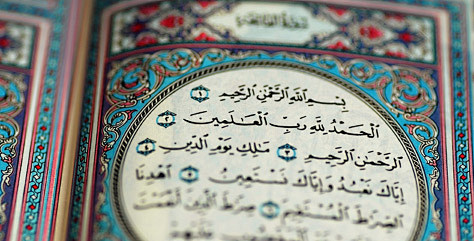 سُورَةُ الْفَاتِحَةِ
بِسْمِ ٱللَّهِ ٱلرَّحْمَٰنِ ٱلرَّحِيمِ ١
ٱلْحَمْدُ لِلَّهِ رَبِّ ٱلْعَٰلَمِينَ ٢
ٱلرَّحْمَٰنِ ٱلرَّحِيمِ ٣ مَٰلِكِ يَوْمِ ٱلدِّينِ ٤
إِيَّاكَ نَعْبُدُ وَإِيَّاكَ نَسْتَعِينُ ٥ ٱهْدِنَا
ٱلصِّرَٰطَ ٱلْمُسْتَقِيمَ ٦ صِرَٰطَ ٱلَّذِينَ أَنْعَمْتَ